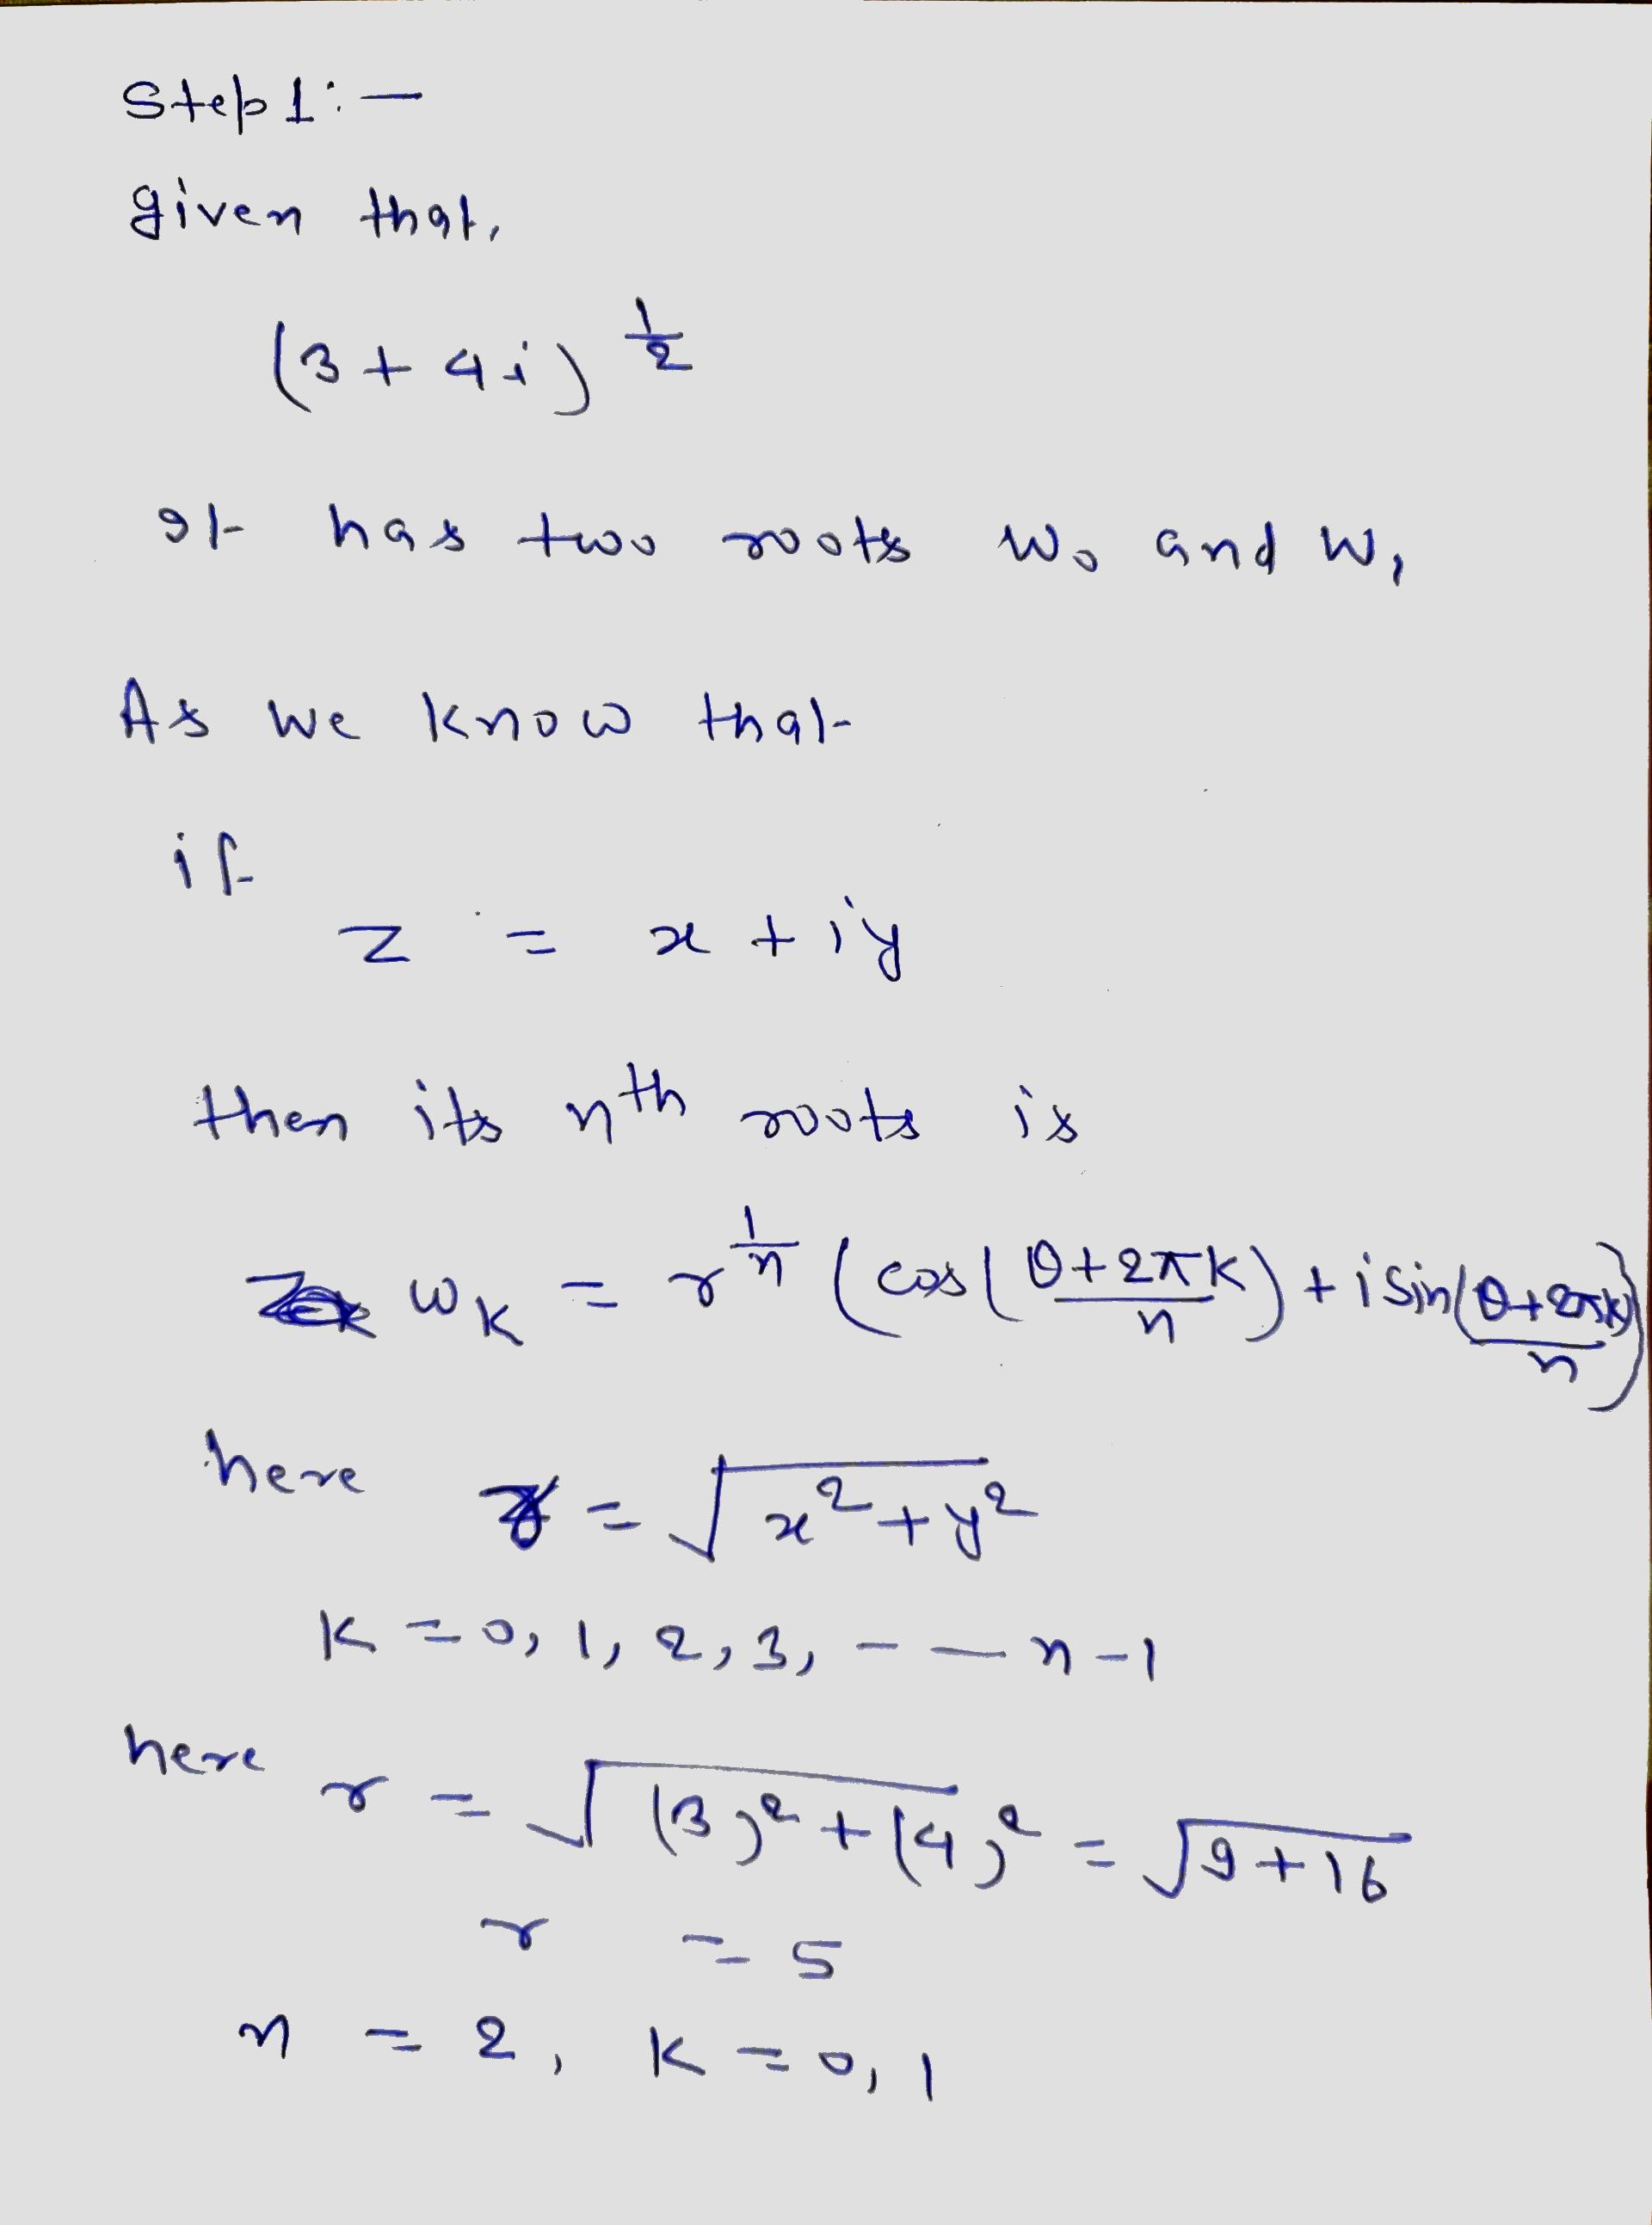 Step 1:-
given that,
(3 + 4i)^{1/2}
It has two roots w₀ and w₁
As we know that
if
z = x + iy
then its nth roots is
w_K = r^{1/n} (cos((θ+2πK)/n) + i sin((θ+2πK)/n))
here r = √(x² + y²)
K = 0, 1, 2, 3, - - n-1
here r = √((3)² + (4)²) = √(9+16)
r = 5
n = 2, K = 0, 1